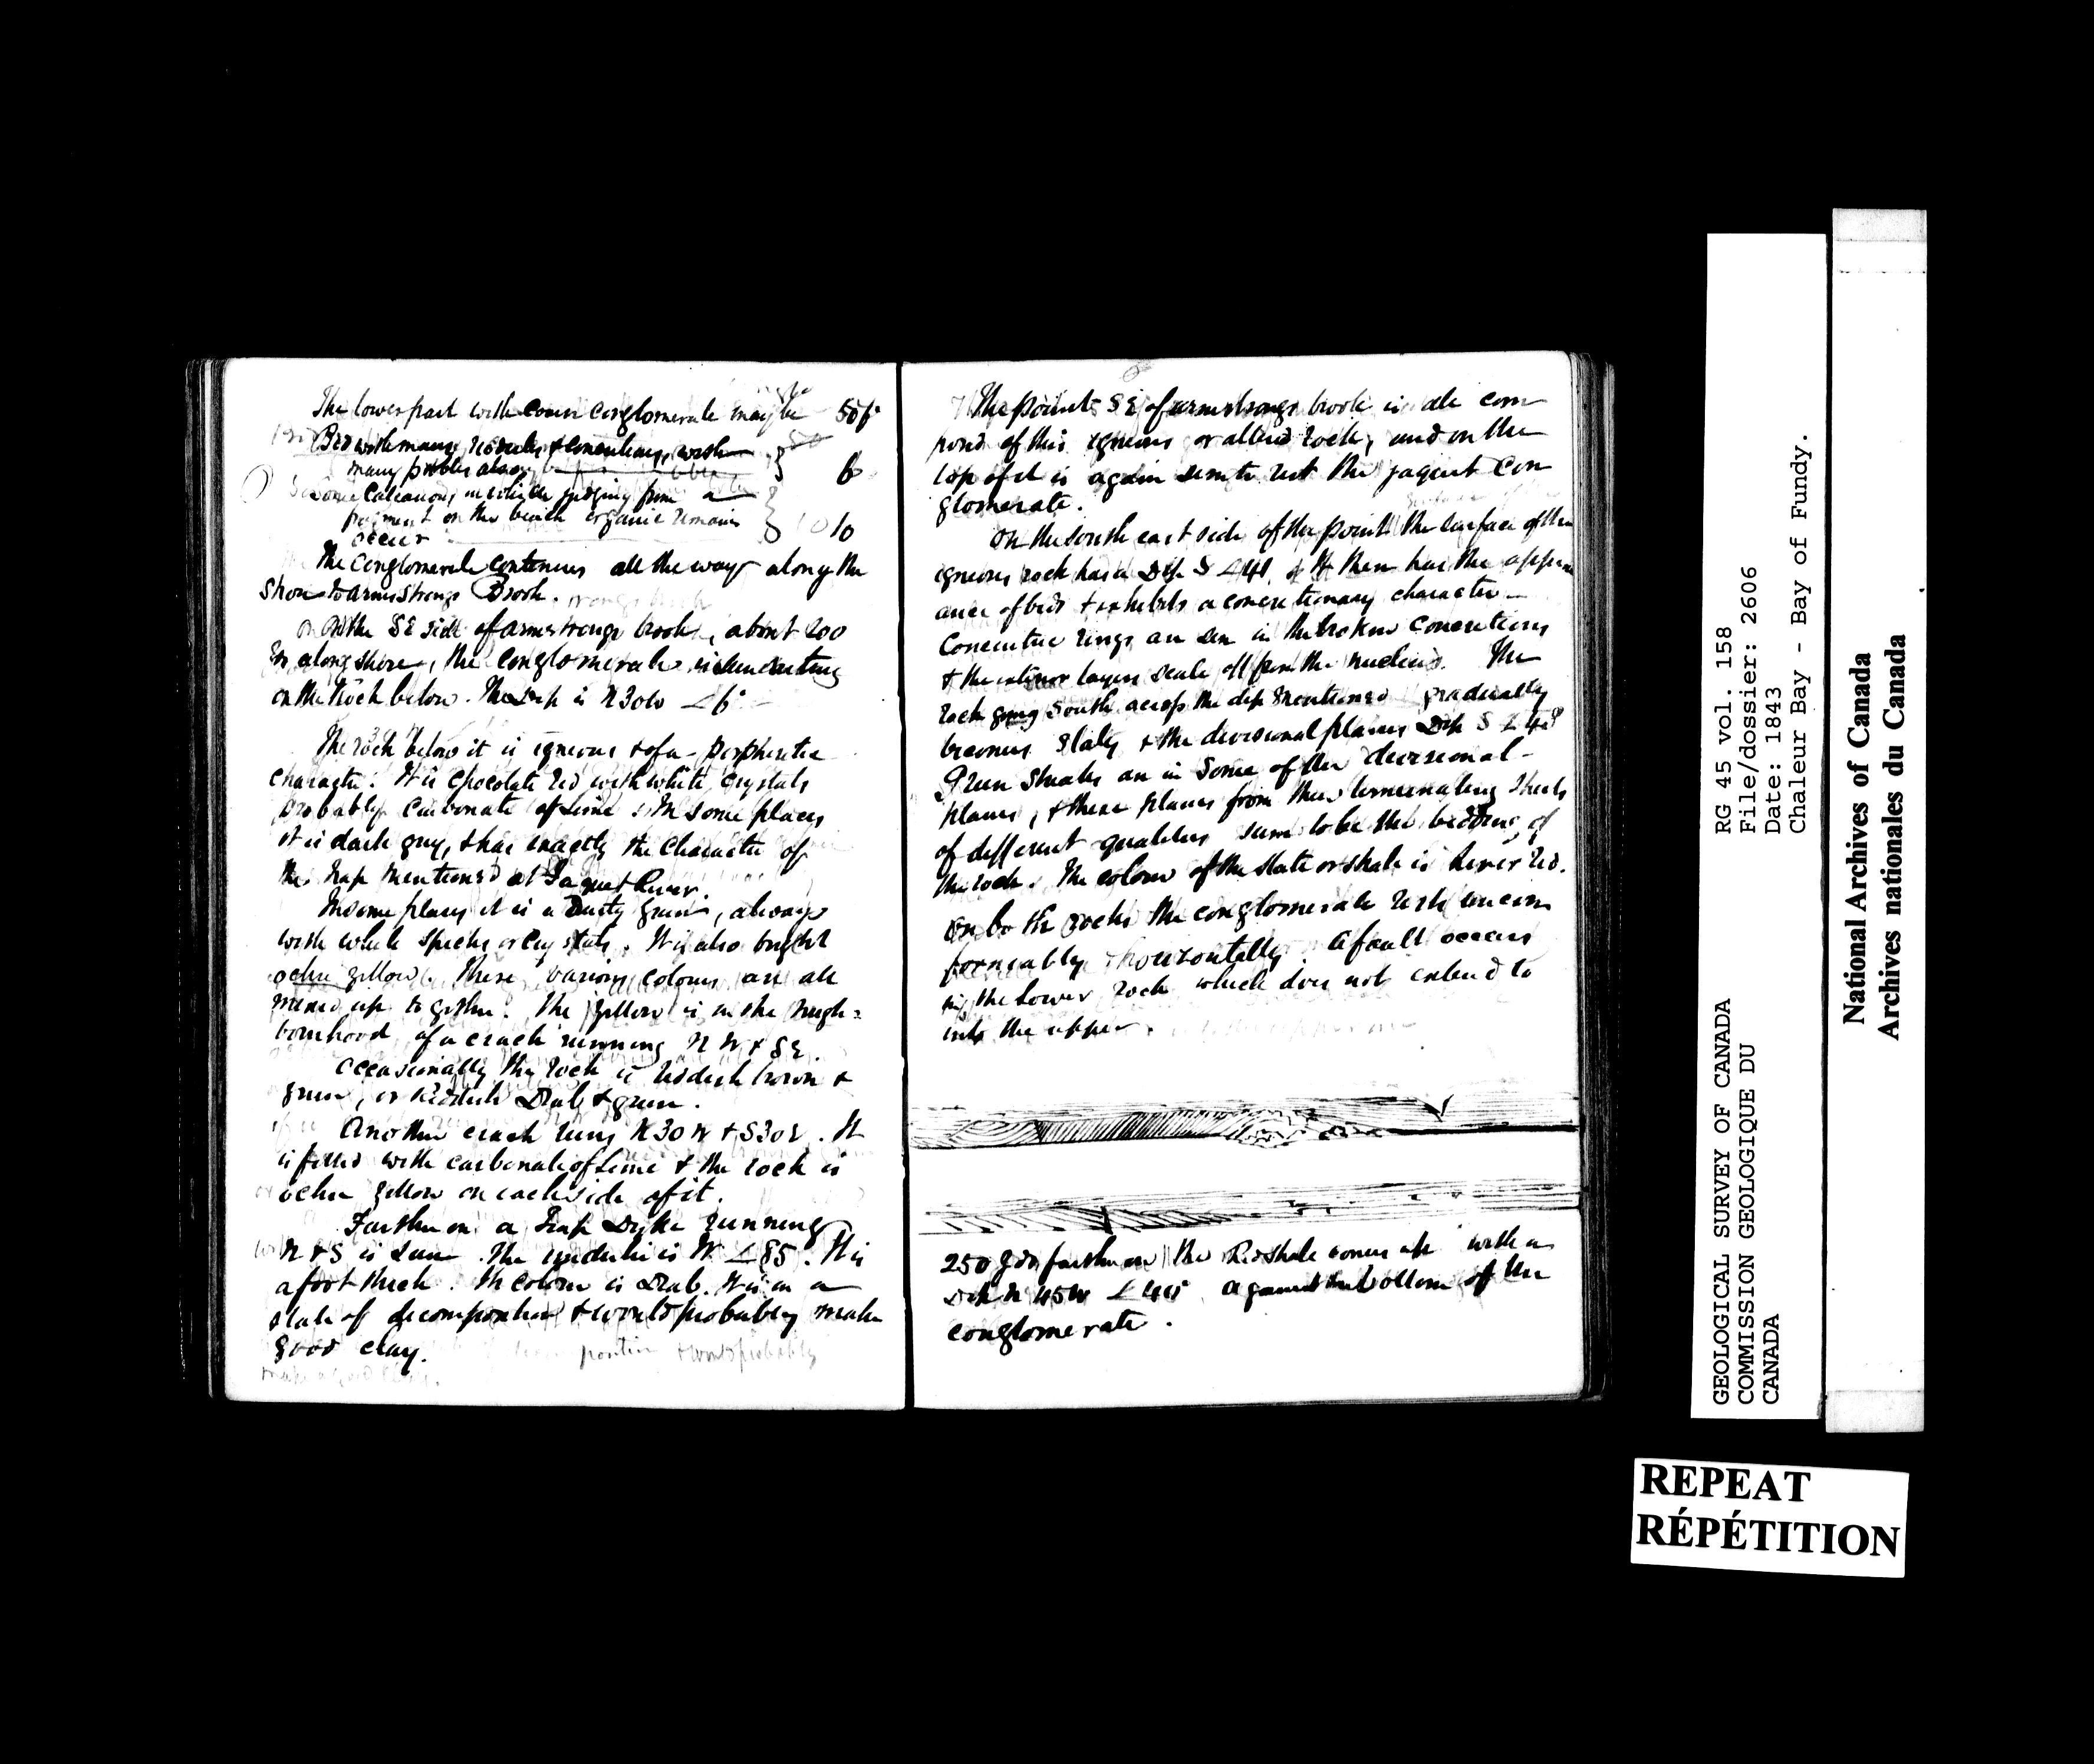 The lower part with coarse conglomerate may be 50 f
Bed with many nodules & concretions, with
many pebbles also 6
Some calcareous judging from a
fragment on the beach organic remains 10
occur
The conglomerate continues all the way along the
Shore to Armstrongs Brook.
On the SE side of Armstrongs brook, about 200
along shore, the conglomerate is seen resting
on the Rock below. The Dip is N30W ∠6°
The rock below it is igneous & of a porpheritic
character. It is chocolate red with white crystals
probably carbonate of Lime. In some places
it is dark grey, & has exactly the character of
the trap mentioned at Jaquet River.
In some places it is a Dusty green, always
with white specks or crystals. It is also bright
ochre yellow. These various colours are all
mixed up together. The yellow is in the neigh=
bourhood of a crack running NW & SE.
Occasionally the rock is reddish brown &
green, or Reddish Drab & green.
Another crack runs N30W & S30E. It
is filled with carbonate of Lime & the rock is
ochre yellow on each side of it.
Farther on a Trap Dyke running
N & S is seen. The underlie is W ∠85°. It is
a foot thick. The colour is Drab. It is in a
state of decomposition & would probably make
good clay.
position & would probably
make a good clay.
The point SE of Armstrongs brook is all com
posed of this igneous or altered rock, and on the
top of it is again seen to rest the Jaquet Con
glomerate.
On the south east side of the point the surface of the
igneous rock has a Dip S ∠41. It then has the appear
ance of beds & exhibits a concretionary character
Concentric rings are seen in the broken concretions
& the exterior layers scale off from the nucleus. The
rock going South across the dip mentioned gradually
becomes Slaty & the divisional planes Dip S ∠48°
Green Streaks are in some of the divisional
planes, & these planes from their terminating Sheets
of different qualities seem to be the bedding of
the rock. The colour of the slate or shale is liver red.
On bo th rocks the conglomerate rests uncon
formably & horizontally. A fault occurs
in the lower rock which does not extend to
into the upper.
250 yds farther on the Red shale comes up with a
Dip N 45W against the bottom of the
conglomerate.
RG 45 vol. 158
File/dossier: 2606
Date: 1843
Chaleur Bay - Bay of Fundy.
GEOLOGICAL SURVEY OF CANADA
COMMISSION GEOLOGIQUE DU
CANADA
National Archives of Canada
Archives nationales du Canada
REPEAT
RÉPÉTITION